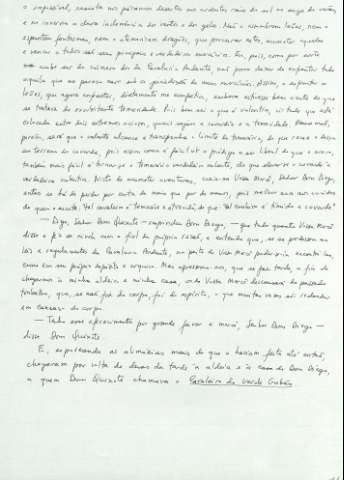 o impossível, resista nos páramos desertos aos ardentes raios do sol no auge do verão,
e no inverno a dura inclemência dos ventos e dos gelos. Não o assombrem leões, nem o
espantem fantasmas, nem o atemorizem dragões, que procurar estes, acometer aqueles
e vencer a todos são seus principais e verdadeiros exercícios. Eu, pois, como por sorte
me coube ser do número dos da Cavalaria Andante, não posso deixar de acometer tudo
aquilo que me parece cair sob a jurisdição de meus exercícios. Assim, o acometer os
leões, que agora acometi, diretamente me competia, embora estivesse bem ciente de que
se tratava de exorbitante temeridade. Pois bem sei o que é valentia, virtude que está
colocada entre dois extremos viciosos, quais sejam a covardia e a temeridade. Menos mal,
porém, será que o valente alcance e transponha o limite da temeridade, do que recue e desça
ao terreno da covardia, pois assim como é mais fácil o pródigo ser liberal do que o avaro,
também mais fácil é tornar-se o temerário verdadeiro valente, do que elevar-se o covarde à
verdadeira valentia. Nisto de acometer aventuras, creia-me Vossa Mercê, Senhor Dom Diego,
antes se há de perder por carta de mais que por de menos, pois melhor soa aos ouvidos
de quem o escuta: "tal cavaleiro é temerário e atrevido", do que: "tal cavaleiro é tímido e covarde".
— Digo, Senhor Dom Quixote — respondeu Dom Diego, — que tudo quanto Vossa Mercê
disse e fez se nivela com o fiel da própria razão, e entendo que, se se perdessem as
leis e regulamentos da Cavalaria Andante, no peito de Vossa Mercê poder-se-ia encontrá-los,
como em seu próprio depósito e arquivo. Mas apressemo-nos, que se faz tarde, a fim de
chegarmos à minha aldeia e minha casa, onde Vossa Mercê descansará do passado
trabalho, que, se não foi do corpo, foi do espírito, o que muitas vezes até redunda
em cansaço do corpo.
— Tenho esse oferecimento por grande favor e mercê, Senhor Dom Diego —
disse Dom Quixote.
E, esporeando as alimárias mais do que o haviam feito até então,
chegaram por volta de duas da tarde à aldeia e à casa de Dom Diego,
a quem Dom Quixote chamava o Cavaleiro do Verde Gabão.